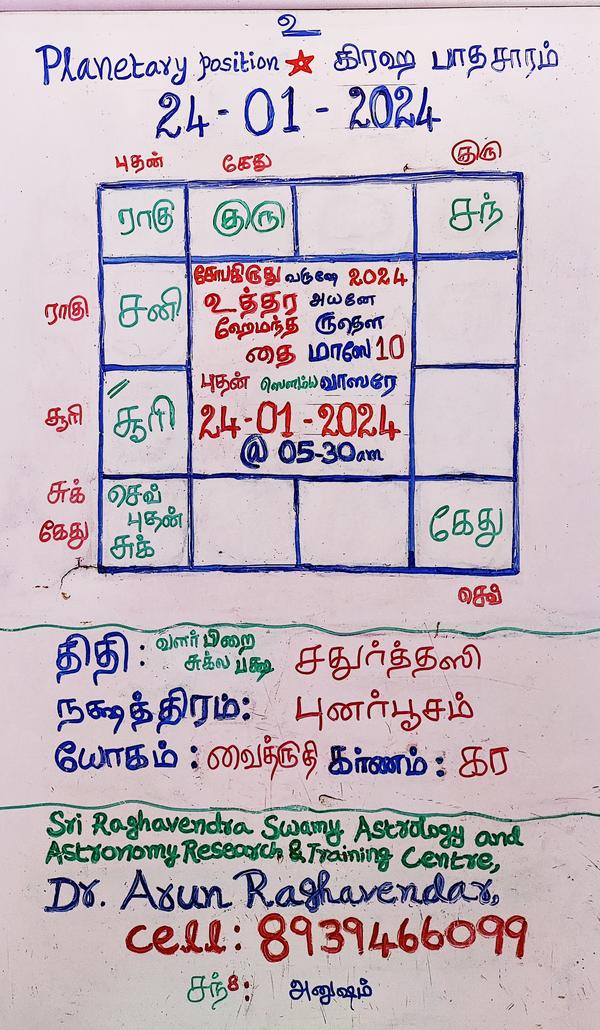 உ
Planetary position ★ கிரஹ பாதசாரம்
24-01-2024
புதன் கேது குரு
ராகு குரு சந்
சோபகிருது வருஷே 2024
ராகு சனி உத்தர அயனே
ஹேமந்த ருதௌ
தை மாஸே 10
புதன் ஸௌம்ய வாஸரே
சூரி சூரி 24-01-2024
@ 05-30am
சுக் செவ்
கேது புதன் கேது
சுக்
செவ்
திதி: வளர்பிறை சதுர்த்தஸி
சுக்ல பக்ஷ
நக்ஷத்திரம்: புனர்பூசம்
யோகம்: வைத்ருதி கர்ணம்: கர
Sri Raghavendra Swamy Astrology and
Astronomy Research & Training Centre,
Dr. Arun Raghavendar,
cell: 8939466099
சந்8: அனுஷம்